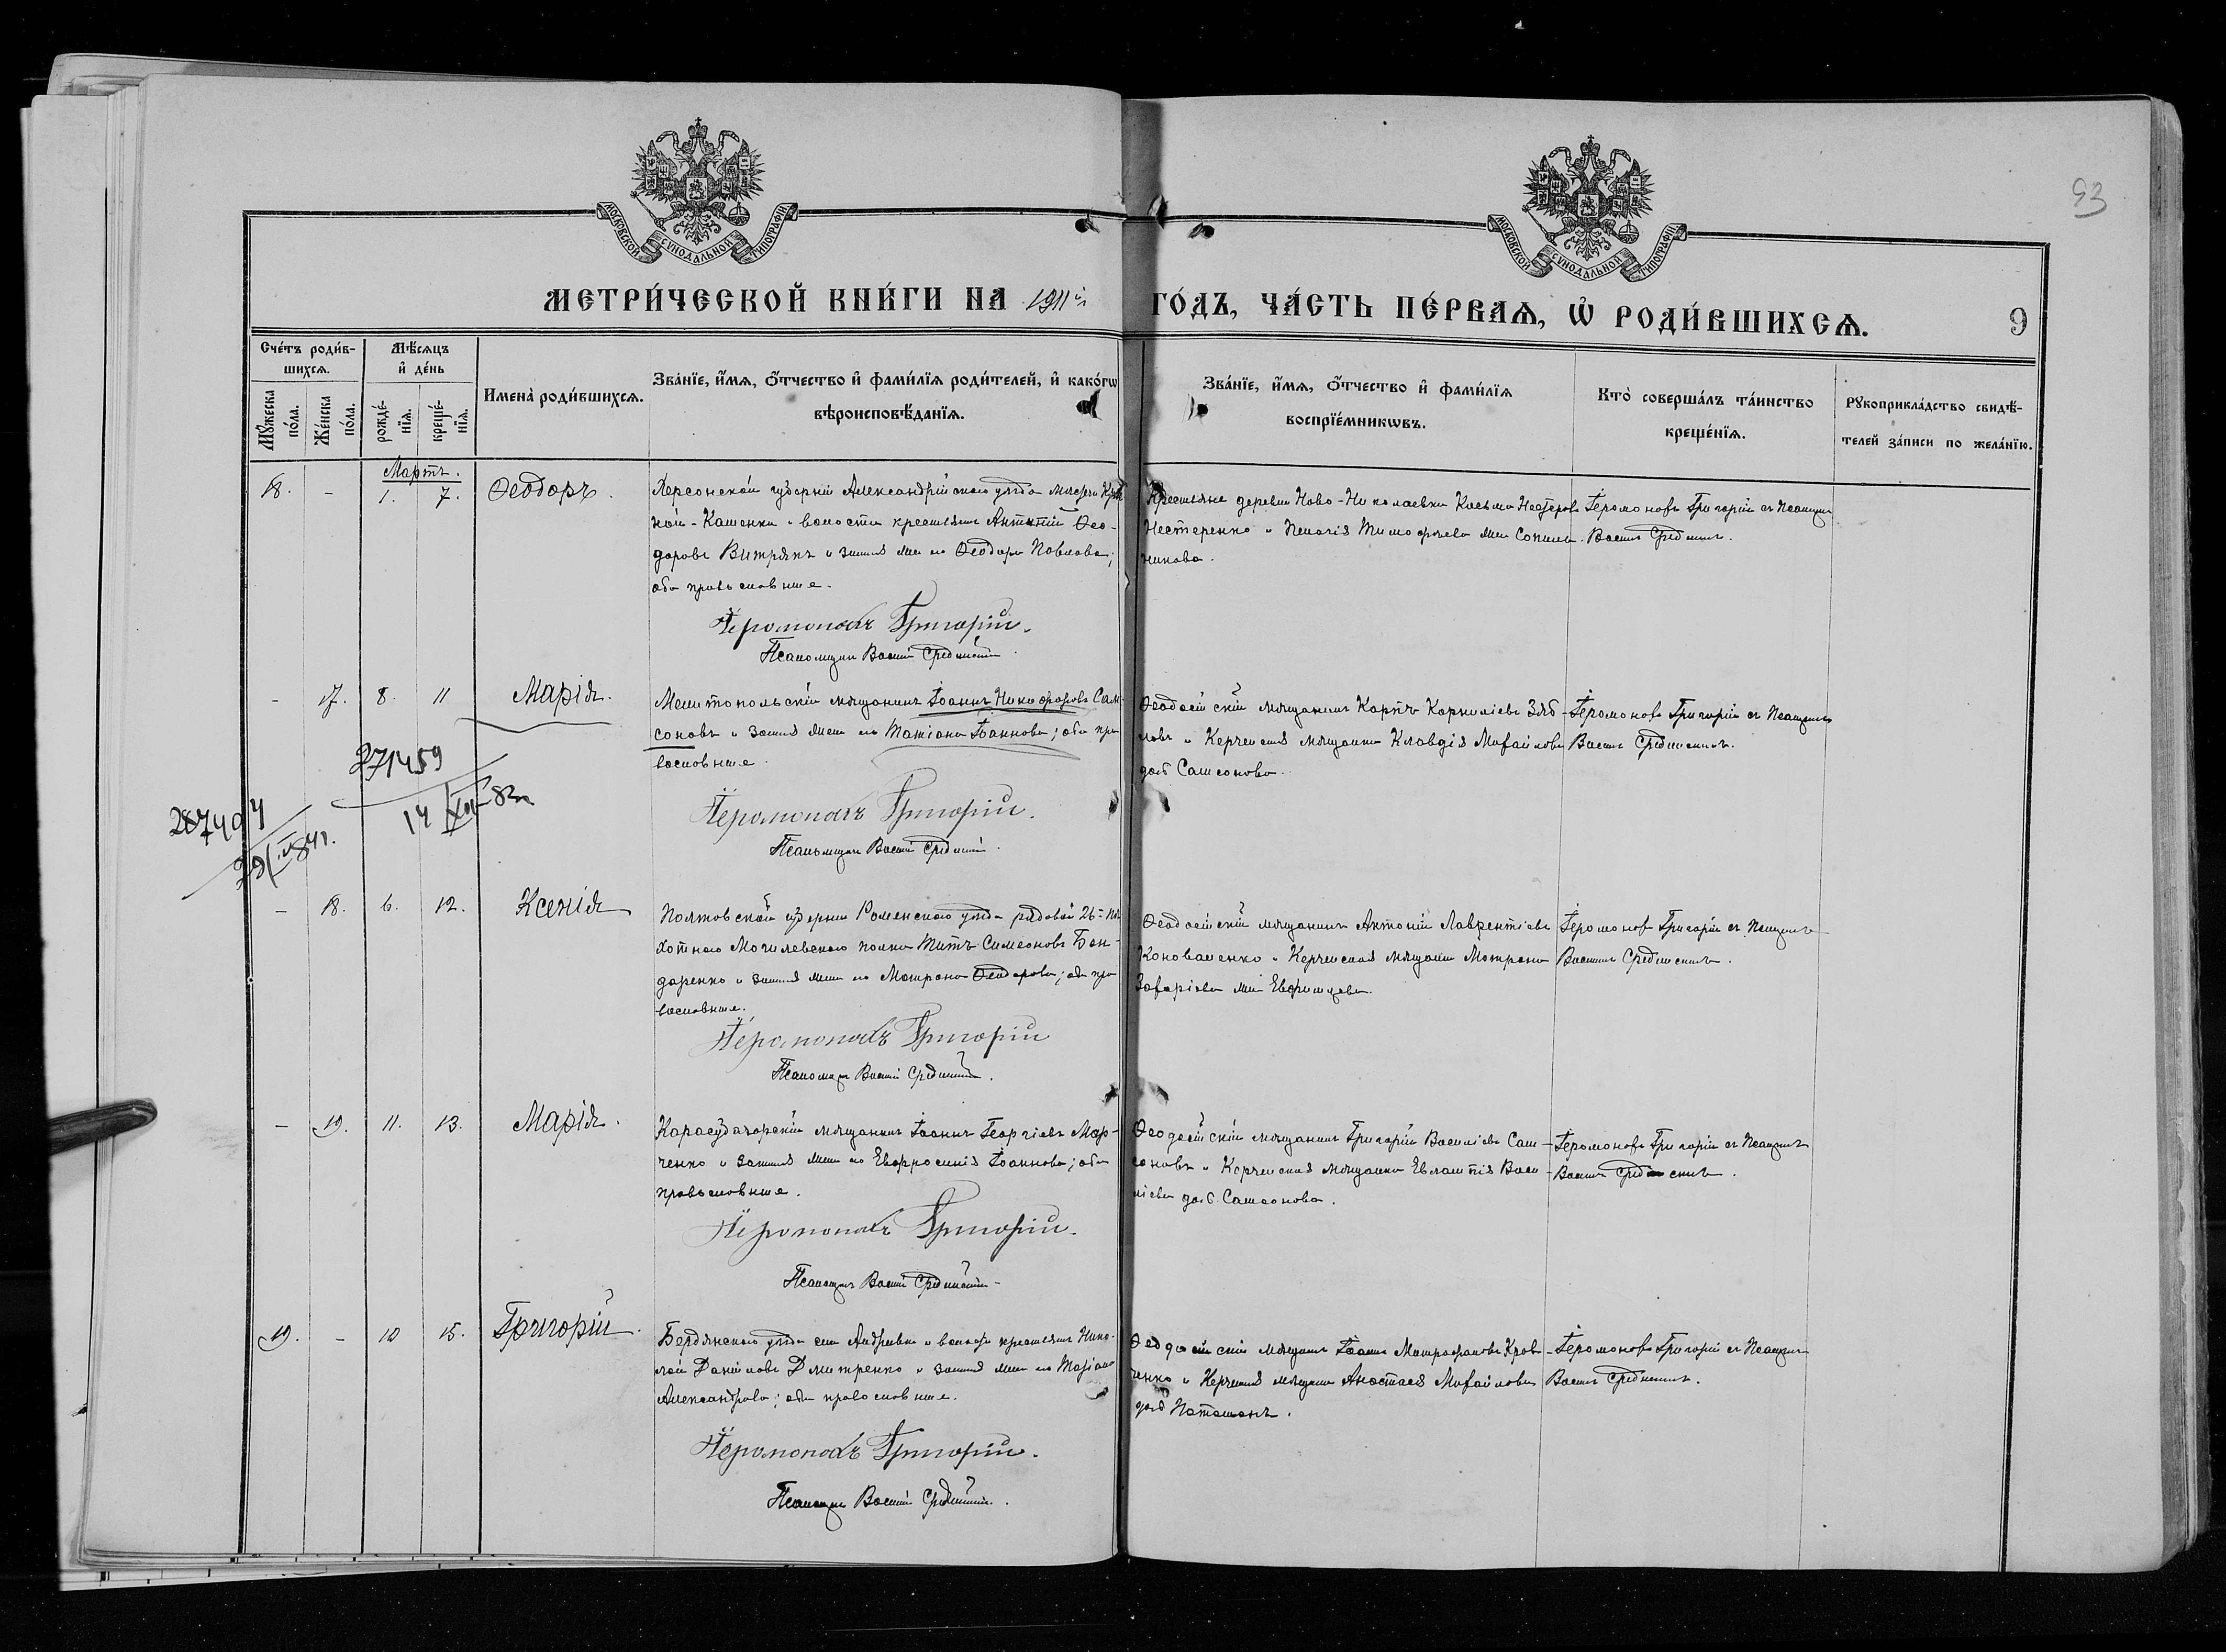 МОСКОВСКОЙ СѴНОДАЛЬНОЙ ТИПОГРАФІИ.
МОСКОВСКОЙ СѴНОДАЛЬНОЙ ТИПОГРАФІИ.
93
МЕТРИ́ЧЕСКОЙ КНИ́ГИ НА 1911й ГО́ДЪ, ЧА́СТЬ ПЕ́РВАѦ, Ѡ҆ РОДИ́ВШИХСѦ.
9
Сче́тъ роди́в-
шихсѧ.
Мꙋ́жеска по́ла.
Же́нска по́ла.
Мѣ́сѧцъ
и҆ де́нь
рожде́-
нїѧ.
креще́-
нїѧ.
И҆мена̀ роди́вшихсѧ.
Зва́нїе, и҆́мѧ, ѻ҆́тчество и҆ фами́лїѧ роди́телей, и҆ како́гѡ
вѣроисповѣ́данїѧ.
Зва́нїе, и҆́мѧ, ѻ҆́тчество и҆ фами́лїѧ
воспрїе́мникѡвъ.
Кто̀ соверша́лъ та́инство
креще́нїѧ.
Рꙋкоприкла́дство свидѣ́-
телей за́писи по жела́нїю.
Мартъ.
18. - 1. 7. Ѳеодоръ.
Херсонской губерніи Александрійскаго уѣзда
ной-Каменки волости крестьянинъ Ѳео-
доровъ Витрякъ и законная жена его Ѳеодора Павлова;
оба православные.
Іеромонахъ Григорій.
Псаломщикъ Василій Срединскій.
Крестьяне деревни Ново-Николаевки Косьма Несторовъ
Нестеренко и Пелагія Тимофѣева
никова.
Іеромонахъ Григорій съ Псаломщ.
Василіемъ Срединскимъ.
- 17. 8. 11 Марія.
Мелитопольскій мѣщанинъ Іоаннъ Никифоровъ Сам-
соновъ и законная жена его Татіана Іоаннова; оба пра-
вославные.
Іеромонахъ Григорій.
Псаломщикъ Василій Срединскій.
Ѳеодосійскій мѣщанинъ Карпъ Корниліевъ Зяб-
ловъ и Керченская мѣщанка Клавдія Михайлова
дочь Самсонова.
Іеромонахъ Григорій съ Псаломщикомъ
Василіемъ Срединскимъ.
271459
14 XII 83г
287404
- 18. 6. 12. Ксенія
Полтавской губерніи Роменскаго уѣзда рядовой 26-
хотнаго Могилевскаго полка Титъ Симеоновъ Бон-
даренко и законная жена его Матрона Ѳеодорова; оба пра-
вославные.
Іеромонахъ Григорій
Псаломщикъ Василій Срединскій.
Ѳеодосійскій мѣщанинъ Антоній Лаврентіевъ
Коноваленко и Керченская мѣщанка Матрона
Захаріева
Іеромонахъ Григорій съ Псаломщ.
Василіемъ Срединскимъ.
- 19. 11. 13. Марія.
Карасубазарскій мѣщанинъ Іоаннъ Георгіевъ Мар-
ченко и законная жена его Евфросинія Іоаннова; оба
православные.
Іеромонахъ Григорій.
Псаломщикъ Василій Срединскій
Ѳеодосійскій мѣщанинъ Григорій Василіевъ Сам-
соновъ и Керченская мѣщанка Евлампія Васи-
ліева дочь Самсонова.
Іеромонахъ Григорій съ Псаломщ.
Василіемъ Срединскимъ.
19. - 10 15. Григорій.
Бердянскаго уѣзда села Андреевки и волости крестьянинъ Нико-
лай Даніиловъ Дмитренко и законная жена его
Александрова; оба православные.
Іеромонахъ Григорій.
Псаломщикъ Василій Срединскій.
Ѳеодосійскій мѣщанинъ Іоаннъ Митрофановъ Крав-
ченко и Керченская мѣщанка Анастасія Михайлова
дочь
Іеромонахъ Григорій съ Псаломщ.
Василіемъ Срединскимъ.